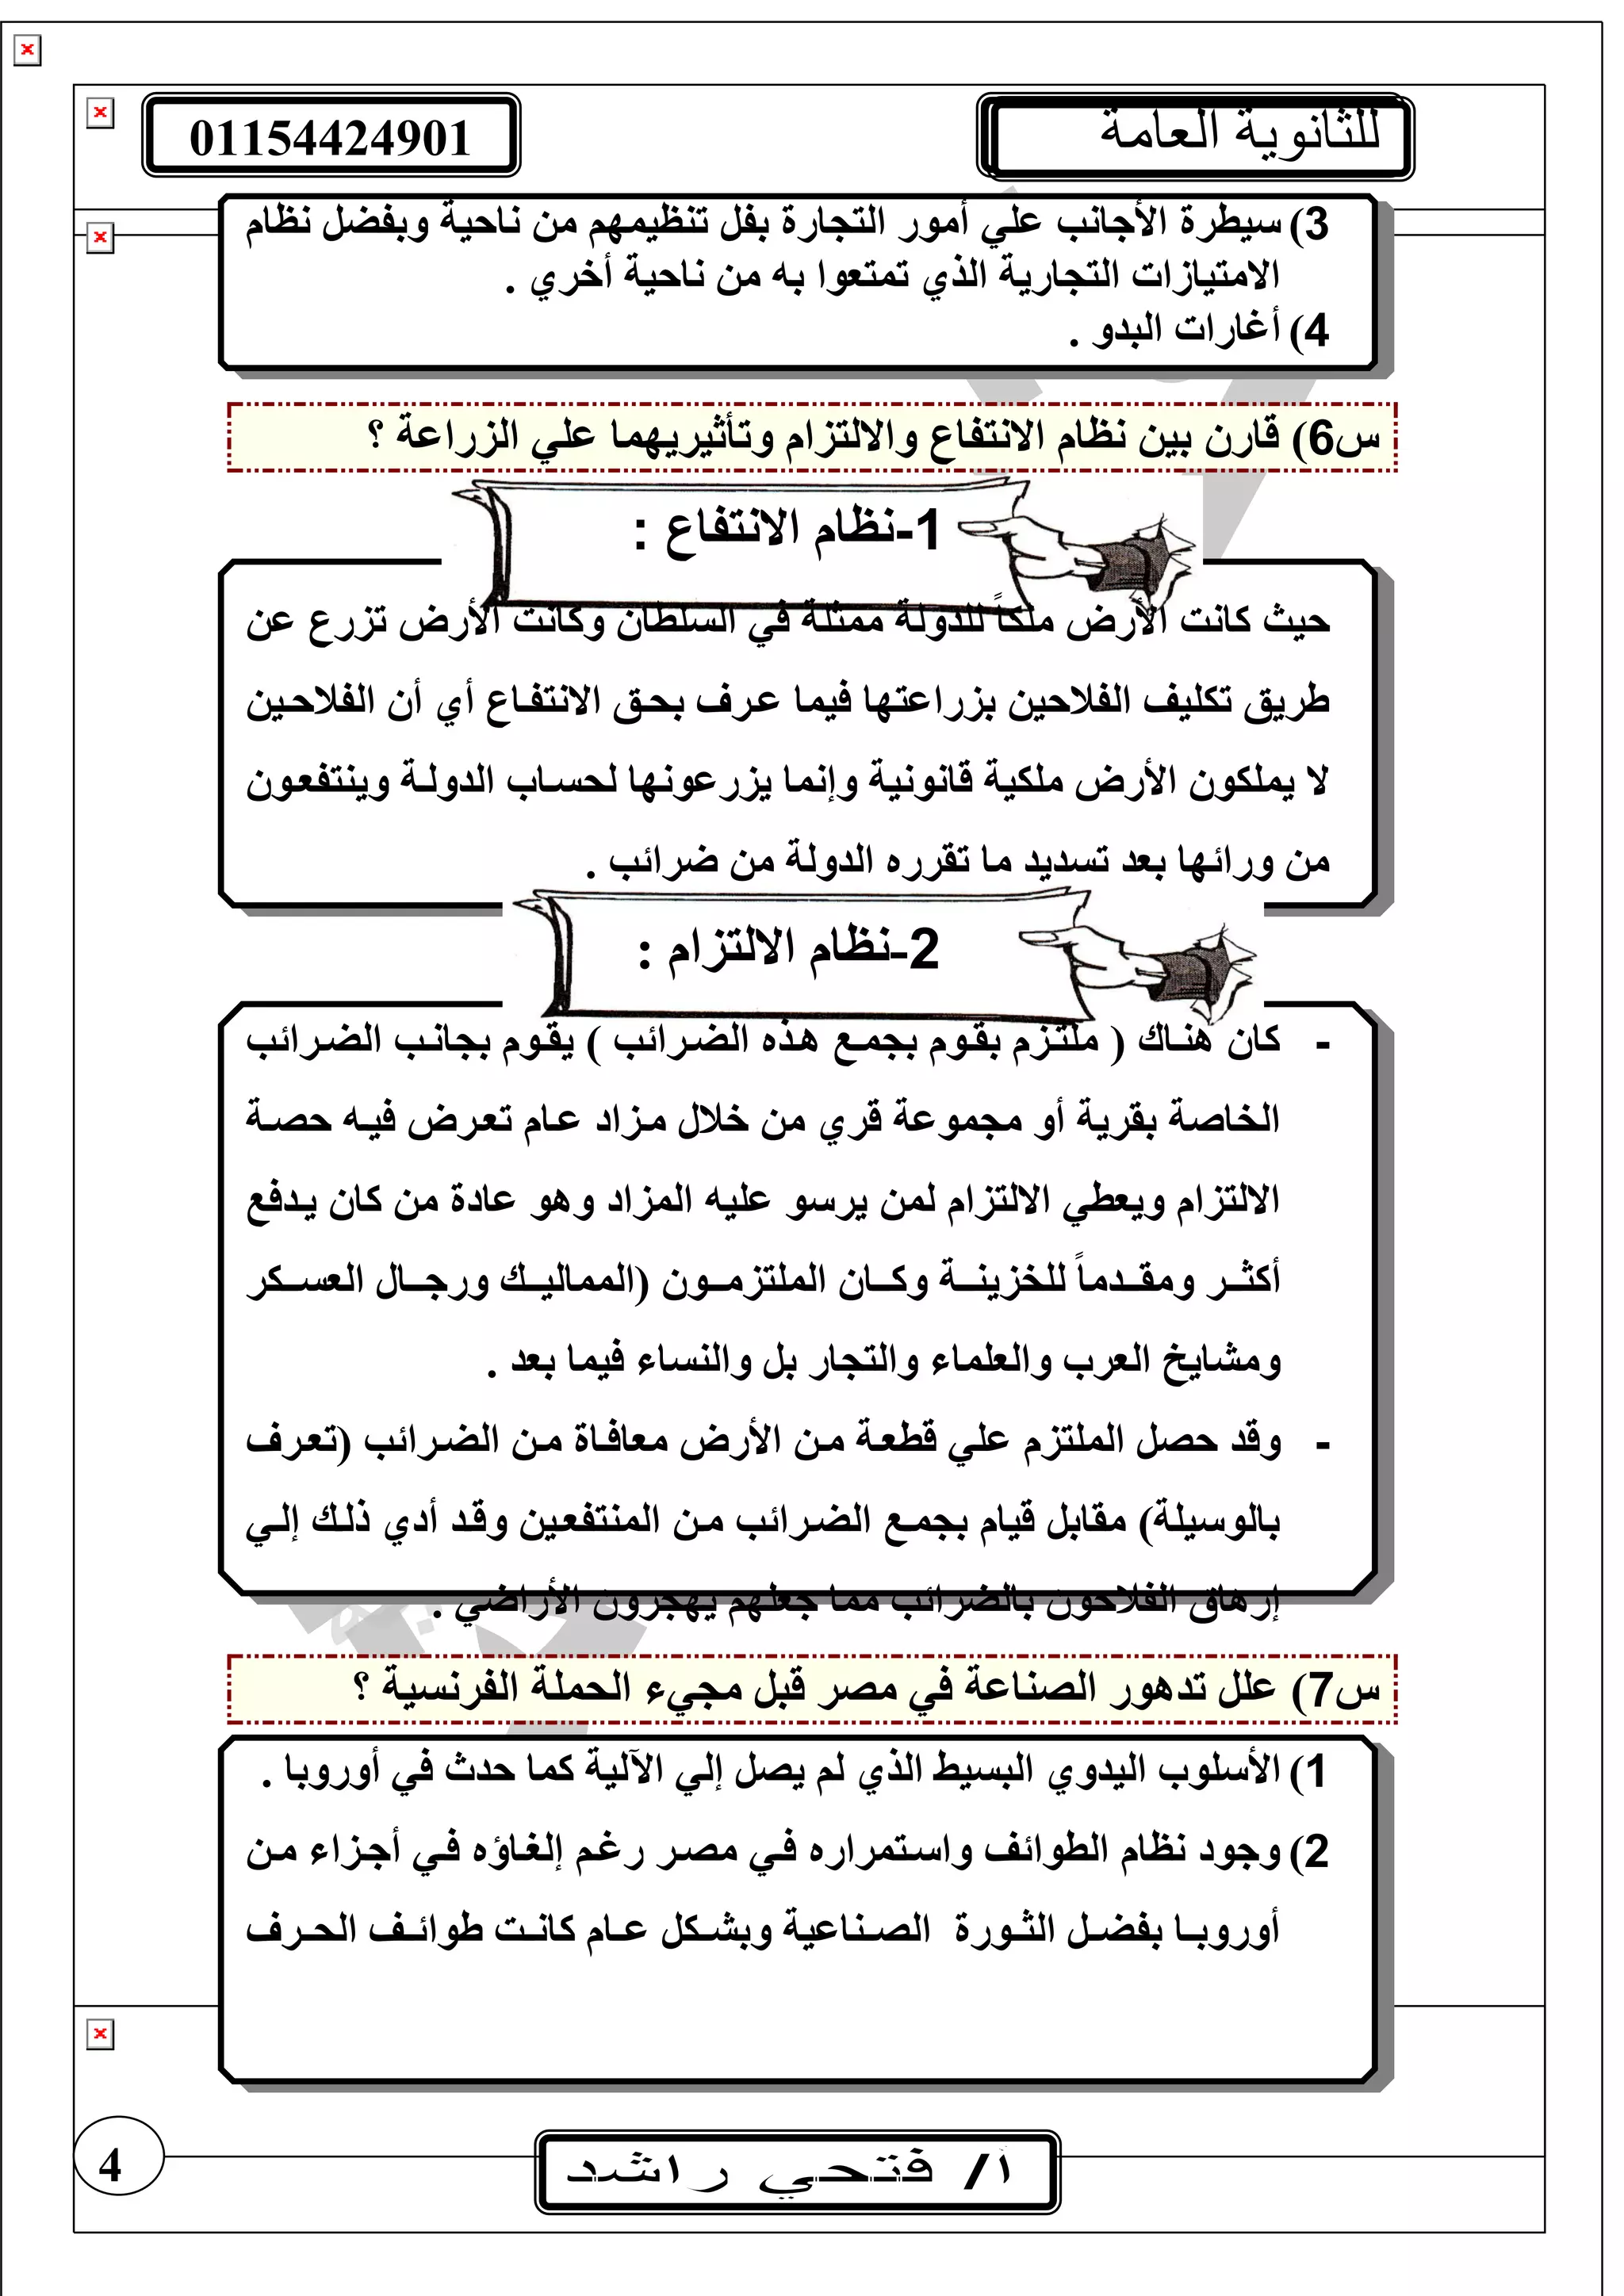 للثانوية العامة
01154424901
3) سيطرة الأجانب علي أمور التجارة بفل تنظيمهم من ناحية وبفضل نظام
الامتيازات التجارية الذي تمتعوا به من ناحية أخري .
4) أغارات البدو .
س6) قارن بين نظام الانتفاع والالتزام وتأثيريهما علي الزراعة ؟
1-نظام الانتفاع :
حيث كانت الأرض ملكاً للدولة ممثلة في السلطان وكانت الأرض تزرع عن
طريق تكليف الفلاحين بزراعتها فيما عرف بحق الانتفاع أي أن الفلاحين
لا يملكون الأرض ملكية قانونية وإنما يزرعونها لحساب الدولة وينتفعون
من ورائها بعد تسديد ما تقرره الدولة من ضرائب .
2-نظام الالتزام :
- كان هناك ( ملتزم بقوم بجمع هذه الضرائب ) يقوم بجانب الضرائب
الخاصة بقرية أو مجموعة قري من خلال مزاد عام تعرض فيه حصة
الالتزام ويعطي الالتزام لمن يرسو عليه المزاد وهو عادة من كان يدفع
أكثر ومقدماً للخزينة وكان الملتزمون (المماليك ورجال العسكر
ومشايخ العرب والعلماء والتجار بل والنساء فيما بعد .
- وقد حصل الملتزم علي قطعة من الأرض معافاة من الضرائب (تعرف
بالوسيلة) مقابل قيام بجمع الضرائب من المنتفعين وقد أدي ذلك إلي
إرهاق الفلاحون بالضرائب مما جعلهم يهجرون الأراضي .
س7) علل تدهور الصناعة في مصر قبل مجيء الحملة الفرنسية ؟
1) الأسلوب اليدوي البسيط الذي لم يصل إلي الآلية كما حدث في أوروبا .
2) وجود نظام الطوائف واستمراره في مصر رغم إلغاؤه في أجزاء من
أوروبا بفضل الثورة الصناعية وبشكل عام كانت طوائف الحرف
أ/ فتحي راشد
4